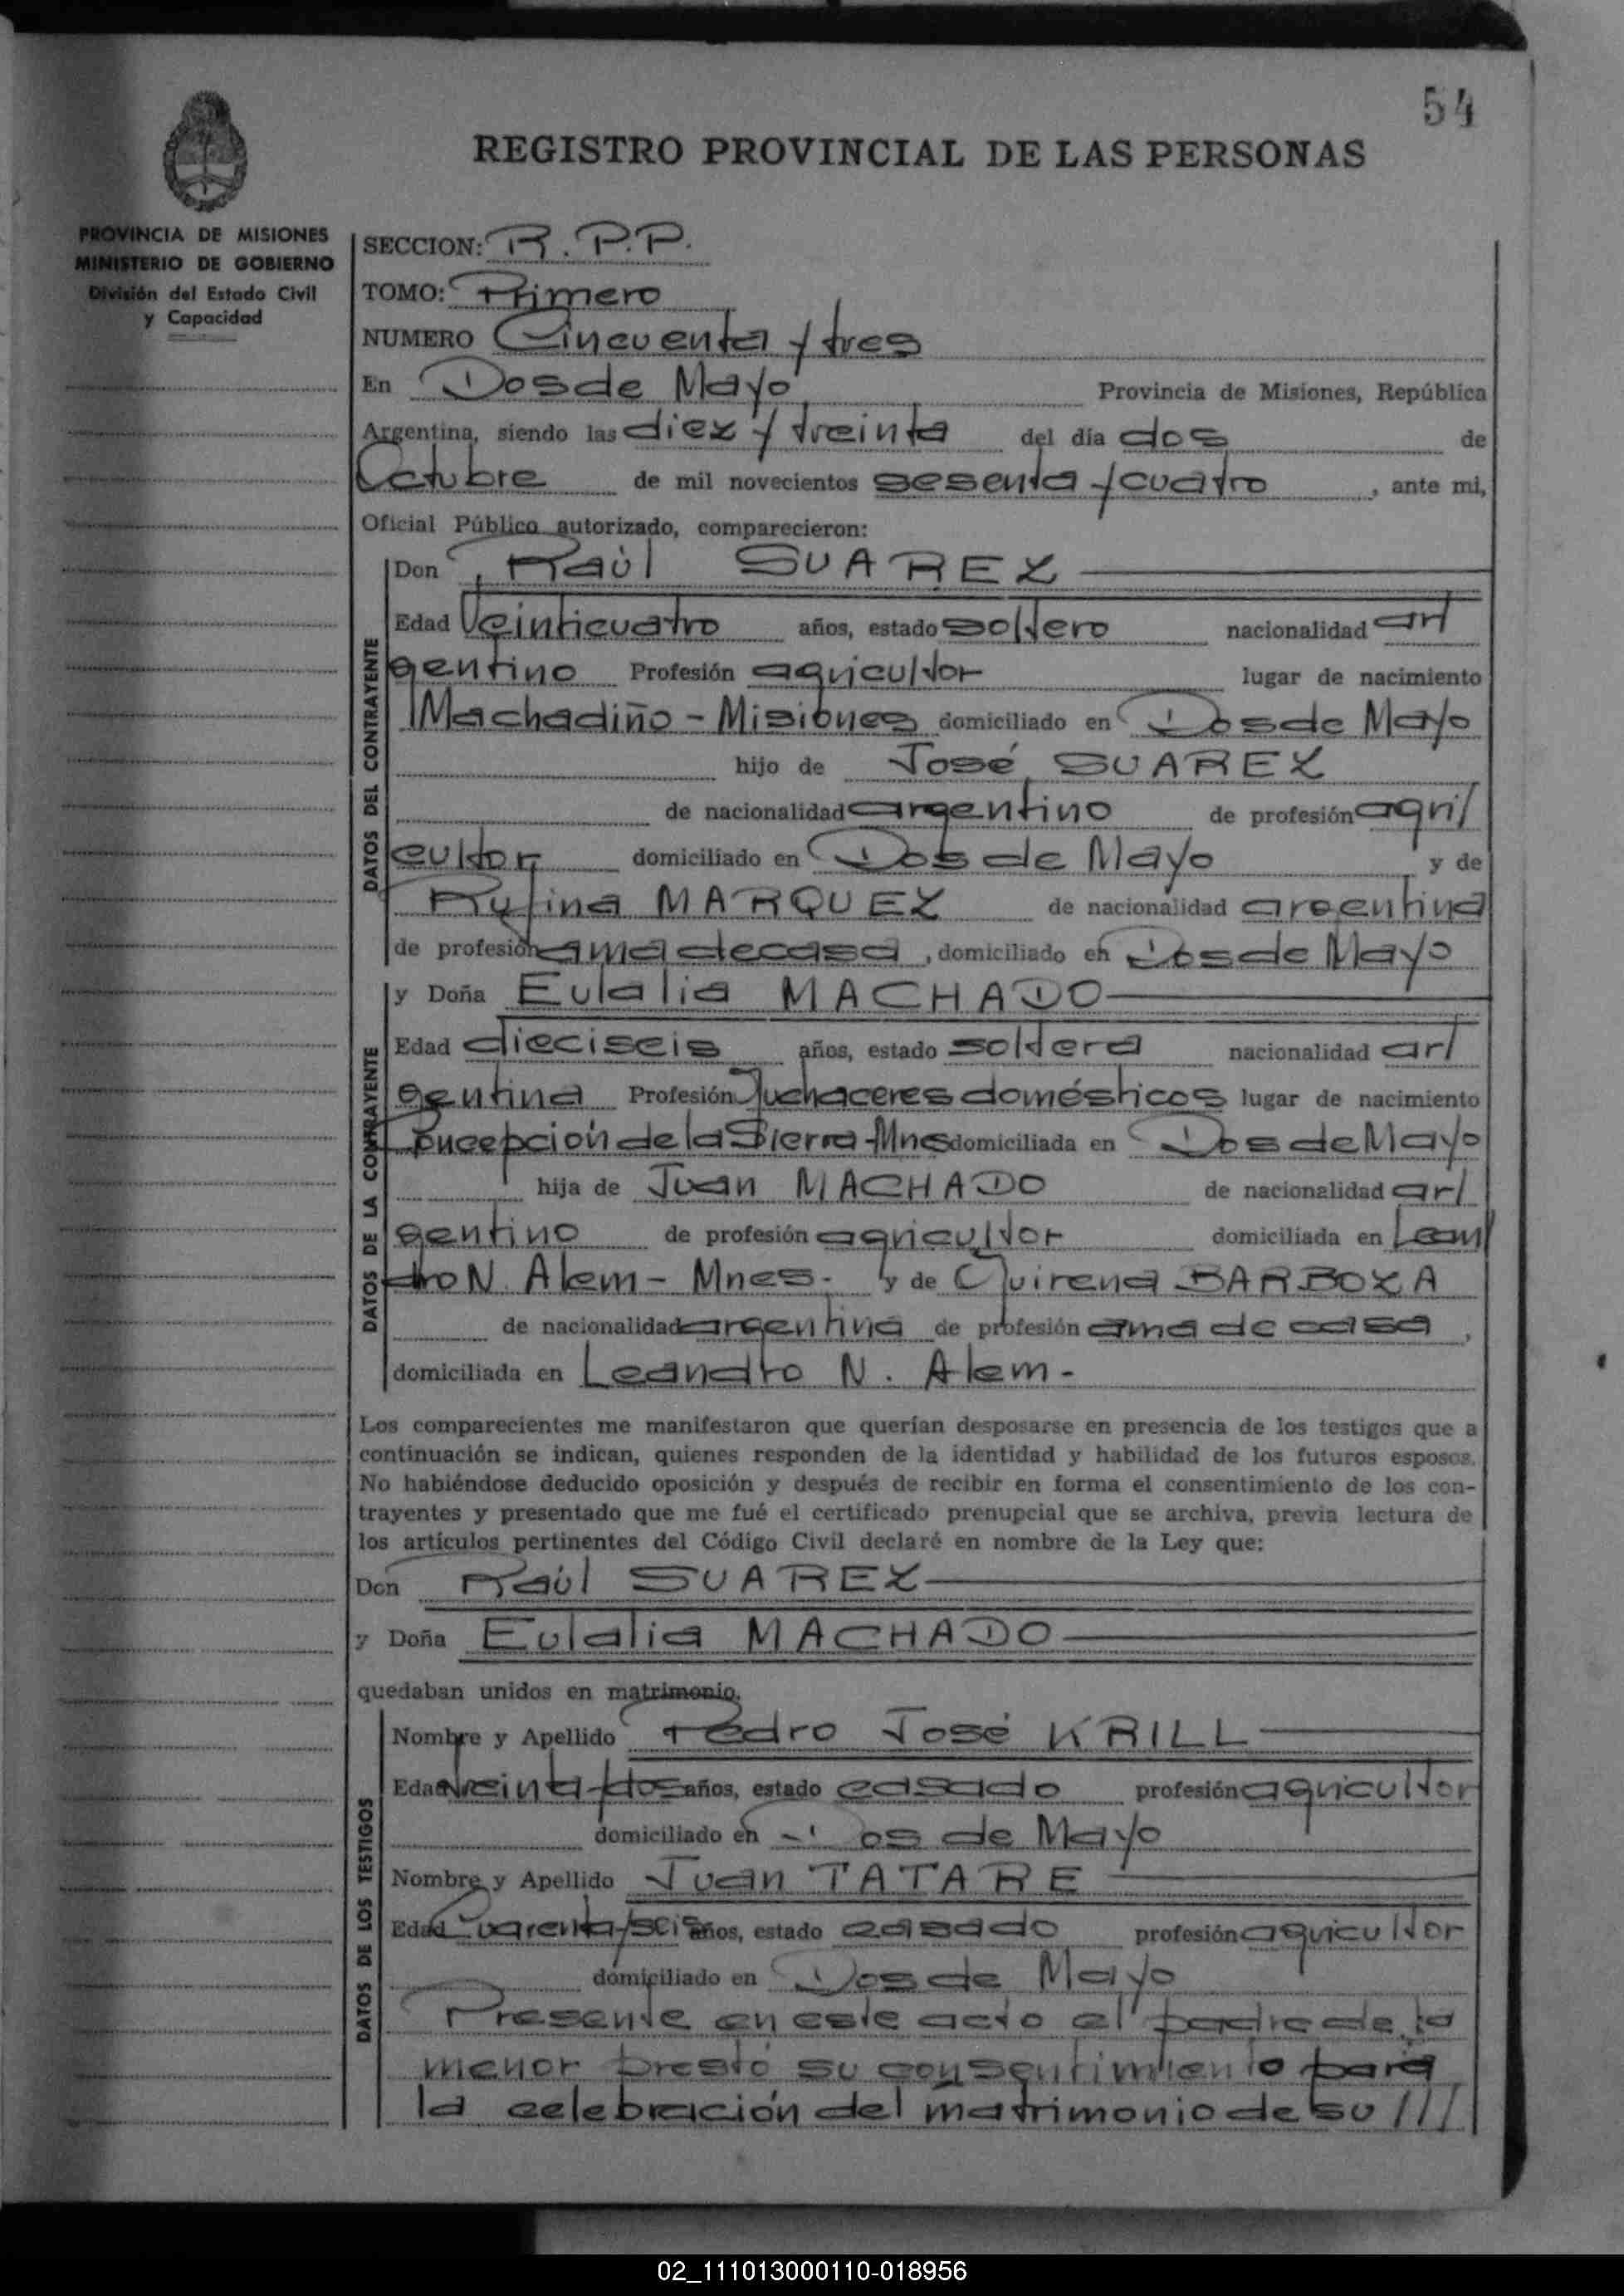 54
REGISTRO PROVINCIAL DE LAS PERSONAS
PROVINCIA DE MISIONES
MINISTERIO DE GOBIERNO
División del Estado Civil
y Capacidad
SECCION: R.P.P.
TOMO: Primero
NUMERO Cincuenta y tres
En Dos de Mayo Provincia de Misiones, República
Argentina, siendo las diez y treinta del día dos de
Octubre de mil novecientos sesenta y cuatro, ante mi,
Oficial Público autorizado, comparecieron:
DATOS DEL CONTRAYENTE
Don Raúl SUAREZ
Edad Veinticuatro años, estado soltero nacionalidad ar/
gentino Profesión agricultor lugar de nacimiento
Machadiño - Misiones domiciliado en Dos de Mayo
hijo de José SUAREZ
de nacionalidad argentino de profesión agri/
cultor domiciliado en Dos de Mayo y de
Rufina MARQUEZ de nacionalidad argentina
de profesión ama de casa, domiciliado en Dos de Mayo
DATOS DE LA CONTRAYENTE
y Doña Eulalia MACHADO
Edad dieciseis años, estado soltera nacionalidad ar/
gentina Profesión quehaceres domésticos lugar de nacimiento
Concepción de la Sierra-Mnes domiciliada en Dos de Mayo
hija de Juan MACHADO de nacionalidad ar/
gentino de profesión agricultor domiciliada en Lean/
dro N. Alem - Mnes. y de Quirena BARBOZA
de nacionalidad argentina de profesión ama de casa,
domiciliada en Leandro N. Alem-
Los comparecientes me manifestaron que querían desposarse en presencia de los testigos que a
continuación se indican, quienes responden de la identidad y habilidad de los futuros esposos.
No habiéndose deducido oposición y después de recibir en forma el consentimiento de los con-
trayentes y presentado que me fué el certificado prenupcial que se archiva, previa lectura de
los artículos pertinentes del Código Civil declaré en nombre de la Ley que:
Don Raúl SUAREZ
y Doña Eulalia MACHADO
quedaban unidos en matrimonio.
DATOS DE LOS TESTIGOS
Nombre y Apellido Pedro José KRILL
Edad treinta y dos años, estado casado profesión agricultor
domiciliado en Dos de Mayo
Nombre y Apellido Juan TATARE
Edad Cuarenta y seis años, estado casado profesión agricultor
domiciliado en Dos de Mayo
Presente en este acto el padre de la
menor prestó su consentimiento para
la celebración del matrimonio de su ///
02_111013000110-018956